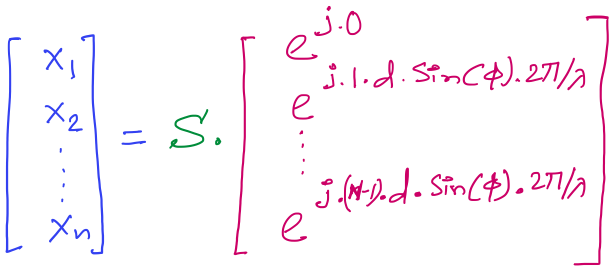 [x₁ x₂ ⋮ xₙ] = S. [e^{j.0} e^{j.1.d.Sin(ϕ).2π/λ} ⋮ e^{j.(N-1).d.Sin(ϕ).2π/λ}]